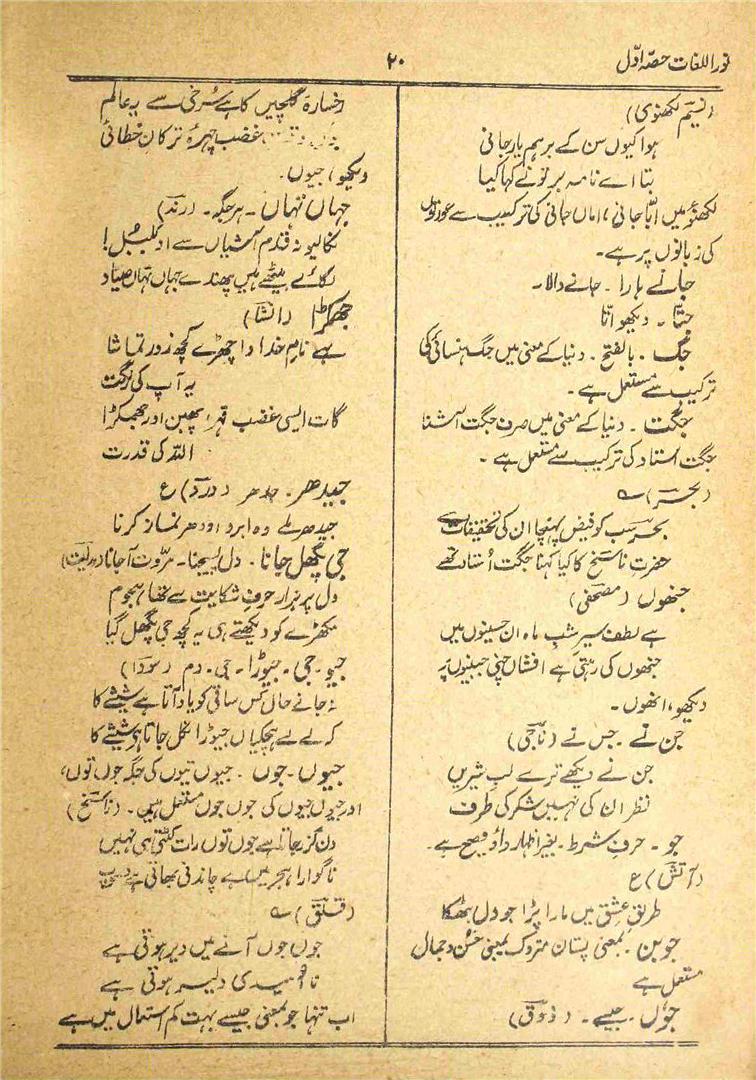 نور اللغات حصہ اوّل
۲۰
(نسیم لکھنوی)
ہوا کیوں سن کے برہم یار جانی
بتا اے نامہ بر تونے کہا کیا
لکھنؤ میں ابّا جانی، اماں جانی کی ترکیب سے عورتوں
کی زبانوں پر ہے۔
جانے ہارا۔ جانے والا۔
جتّا۔ دیکھو اتّا
جگ۔ بالفتح۔ دنیا کے معنی میں جگ ہنسائی کی
ترکیب سے مستعمل ہے۔
جگت۔ دنیا کے معنی میں صرف جگت آشنا
جگت استاد کی ترکیب سے مستعمل ہے۔
(بحر) ؎
بحر سب کو فیض پہنچا ان کی تحقیقات سے
حضرتِ ناسخ کا کیا کہنا جگت اُستاد تھے
جنھوں (مصحفی)
ہے لطف سیرِ شبِ ماہ ان حسینوں میں
جنھوں کی رہتی ہے افشاں چنی جبینوں پر
دیکھو، انھوں۔
جن نے۔ جس نے (ناجی)
جن نے دیکھے ترے لبِ شیریں
نظر ان کی نہیں شکر کی طرف
جو۔ حرفِ شرط۔ بغیر اظہار واؤ فصیح ہے۔
(آتش) ع
طریقِ عشق میں مارا پڑا جو دل بھٹکا
جوبن۔ بمعنی پستان متروک بمعنی حسُن و جمال
مستعمل ہے
جوں۔ جیسے۔ (ذوق)
رخسارۂ گلچیں کا ہے سُرخی سے یہ عالم
غضب چہرۂ ترکانِ خطائی
دیکھو) جیوں۔
جہاں تہاں۔ ہر جگہ۔ (رند)
نکالیو نہ قدم آشیاں سے او بلبُل!
لگائے بیٹھے ہیں پھندے جہاں تہاں صیاد
جھکڑا (انشا)
ہے نامِ خدا واچھڑے کچھ زور تماشا
یہ آپ کی رنگت
گات ایسی غضب قہر پھبن اور جھمکڑا
اللہ کی قدرت
جیدھر۔ جدھر (درد) ع
جیدھر ملے وہ ابرو اودھر نماز کرنا
جی پگھل جانا۔ دل پسیجنا۔ مروّت آجانا
دل پر ہزار حرفِ شکایت سے تھا ہجوم
مکھڑے کو دیکھتے ہی یہ کچھ جی پگھل گیا
جیو۔ جی۔ جیوڑا۔ جی۔ دم (سودا)
نہ جانے حال کس ساقی کو یاد آتا ہے شیشے کا
کہ لے لے ہچکیاں جیوڑا نکل جاتا ہے شیشے کا
جیوں۔ جوں۔ جیوں تیوں کی جگہ جوں توں،
اور جیوں جیوں کی جوں جوں مستعمل ہیں۔ (ناسخ)
دن گزر جاتا ہے جوں توں رات کٹتی ہی نہیں
ناگوارا ہجر میں ہے چاندنی بھاتی ہے
(قلق) ؎
جوں جوں آنے میں دیر ہوتی ہے
نا امیدی دلیر ہوتی ہے
اب تنہا جو بمعنی جیسے بہت کم استعمال میں ہے